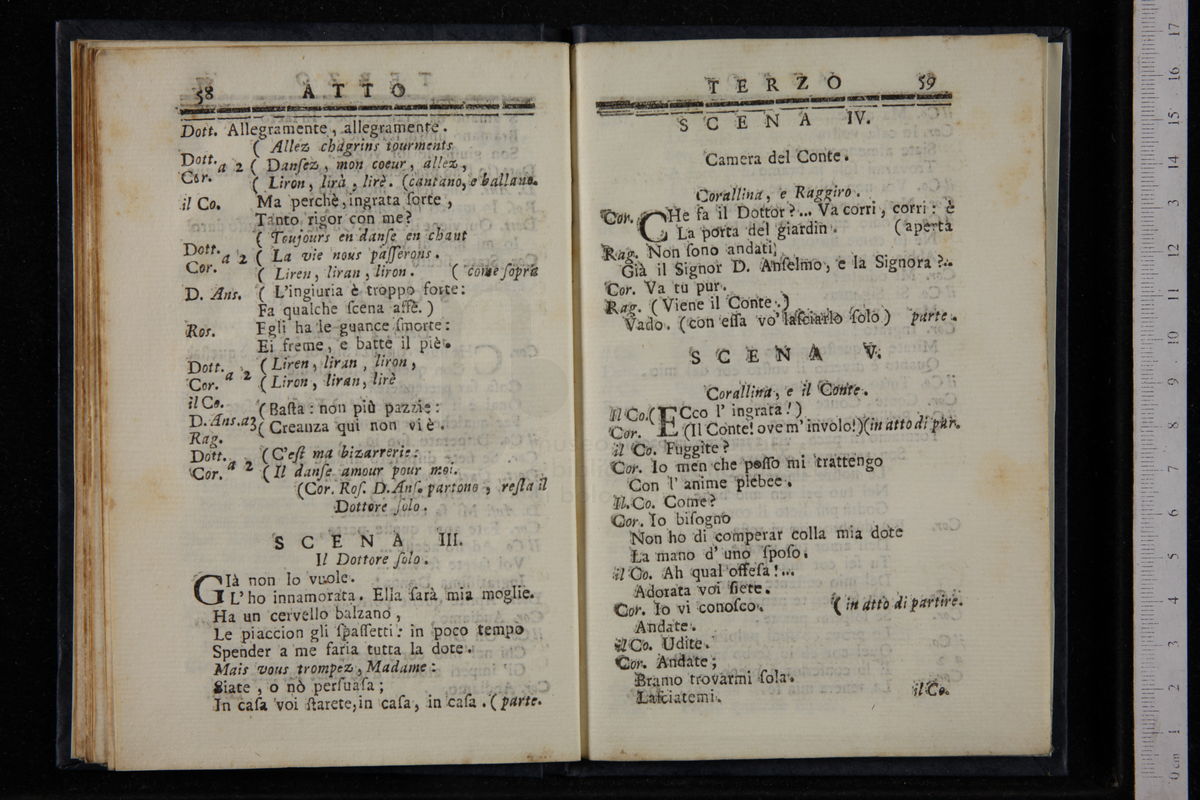 58 ATTO
Dott. Allegramente, allegramente.
( Allez chagrins tourments
Dott. a 2 ( Dansez, mon coeur, allez,
Cor. ( Liron, lirà, lirè. (cantano, e ballano.
il Co. Ma perchè, ingrata sorte,
Tanto rigor con me?
( Toujours en danse en chaut
Dott. a 2 ( La vie nous passerons.
Cor. ( Liren, liran, liron. ( come sopra
D. Ans. ( L'ingiuria è troppo forte:
Fa qualche scena affè. )
Ros. Egli ha le guance smorte:
Ei freme, e batte il piè.
Dott. a 2 ( Liren, liran, liron,
Cor. ( Liron, liran, lirè
il Co.
D. Ans. a3 ( Basta: non più pazzie:
Rag. ( Creanza quì non vi è.
Dott. a 2 ( C'est ma bizarrerie:
Cor. ( Il danse amour pour moi.
(Cor. Ros. D. Ans. partono, resta il
Dottore solo.
SCENA III.
Il Dottore solo.
GIà non lo vuole.
L'ho innamorata. Ella sarà mia moglie.
Ha un cervello balzano,
Le piaccion gli spassetti: in poco tempo
Spender a me faria tutta la dote.
Mais vous trompez, Madame:
Siate, o nò persuasa;
In casa voi starete, in casa, in casa. (parte.
TERZO 59
SCENA IV.
Camera del Conte.
Corallina, e Raggiro.
Cor. CHe fa il Dottor?... Va corri, corri: è
La porta del giardin. (aperta
Rag. Non sono andati,
Già il Signor D. Anselmo, e la Signora?..
Cor. Va tu pur.
Rag. (Viene il Conte.)
Vado. (con essa vo' lasciarlo solo) parte.
SCENA V.
Corallina, e il Conte.
Il Co. ( ECco l'ingrata!)
Cor. (Il Conte! ove m'involo!) (in atto di par.
il Co. Fuggite?
Cor. Io men che posso mi trattengo
Con l'anime plebee.
Il Co. Come?
Cor. Io bisogno
Non ho di comperar colla mia dote
La mano d'uno sposo.
il Co. Ah qual offesa!...
Adorata voi siete.
Cor. Io vi conosco. ( in atto di partire.
Andate.
il Co. Udite.
Cor. Andate;
Bramo trovarmi sola.
Lasciatemi.
il Co.
17
16
15
14
13
12
11
10
9
8
7
6
5
4
3
2
1
0 cm